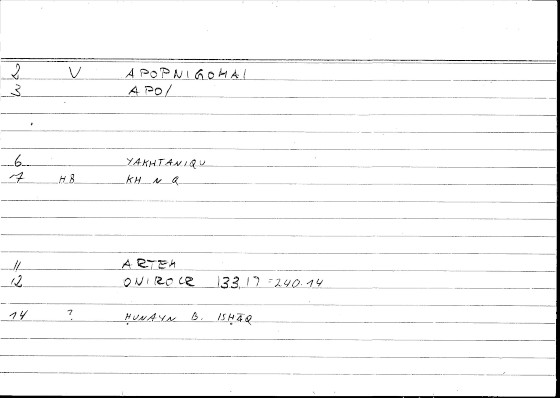 2 V APOPNIGOMAI
3 APO/
6 YAKHTANIQU
7 HB KH N Q
11 ARTEM
12 ONIROCR 133,17 = 240.14
14 ? ḤUNAYN B. ISḤĀQ